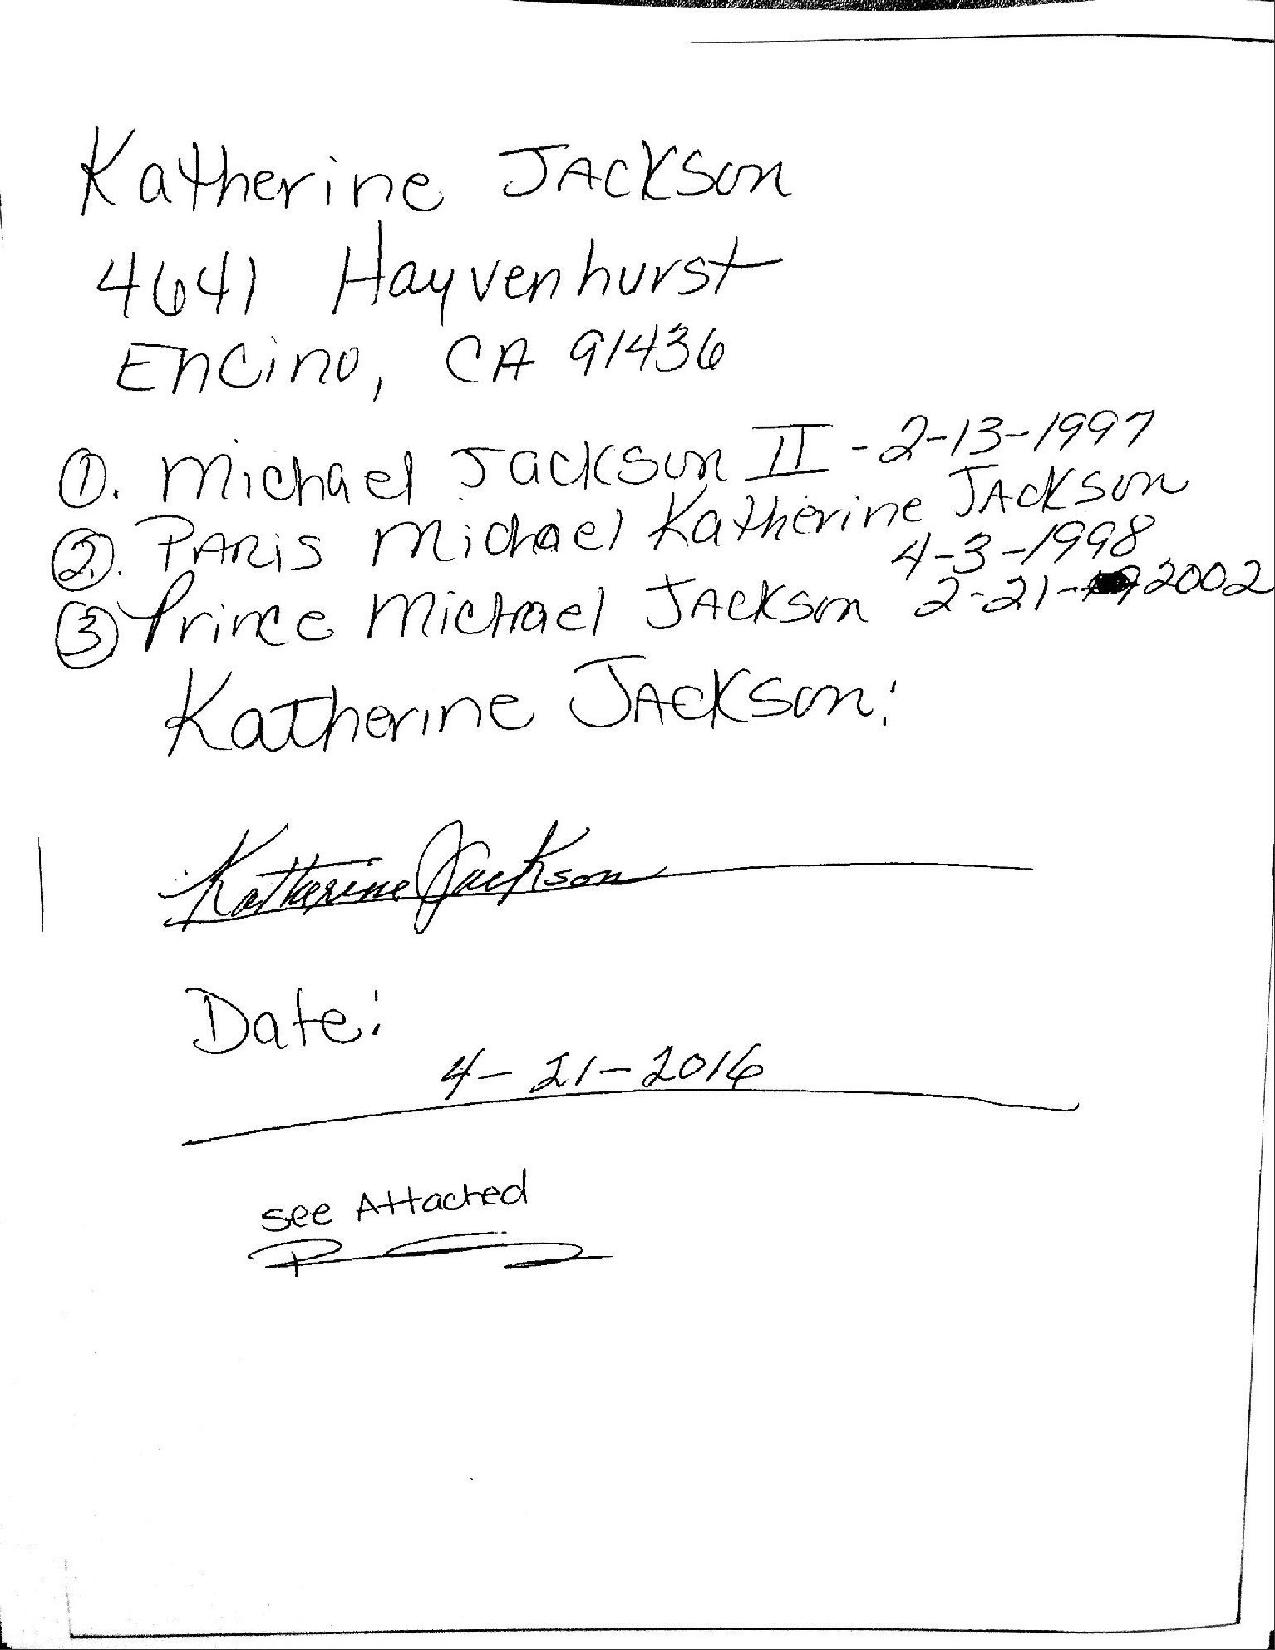 Katherine Jackson
4641 Hayvenhurst
Encino, CA 91436
①. Michael Jackson II - 2-13-1997
②. Paris Michael Katherine Jackson
4-3-1998
③ Prince Michael Jackson 2-21-2002
Katherine Jackson:
Katherine Jackson
Date:
4-21-2016
see Attached